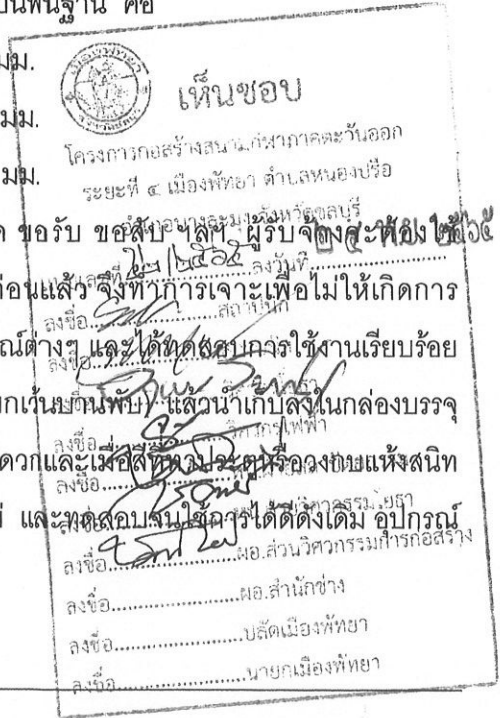 เป็นพื้นฐาน คือ
มม.
มม.
มม.
ขอรับ ขอสับ ฯลฯ ผู้รับจ้างจะต้องใช้
ก่อนแล้ว จึงทำการเจาะเพื่อไม่ให้เกิดการ
ณ์ต่างๆ และได้ทดสอบการใช้งานเรียบร้อย
ยกเว้นบานพับ) แล้วนำเก็บลงในกล่องบรรจุ
ดวกและเมื่อสีที่ทาประตูหรือวงกบแห้งสนิท
และทดสอบจนใช้การได้ดีดังเดิม อุปกรณ์
เห็นชอบ
โครงการก่อสร้างสนามกีฬาภาคตะวันออก
ระยะที่ ๔ เมืองพัทยา ตำบลหนองปรือ
อำเภอบางละมุง จังหวัดชลบุรี
เลขที่ ๒/๒๕๖๕ ลงวันที่
ลงชื่อ สถาปนิก
ลงชื่อ
ลงชื่อ วิศวกรไฟฟ้า
ลงชื่อ
ลงชื่อ
ลงชื่อ ผอ.ส่วนวิศวกรรมการก่อสร้าง
ลงชื่อ ผอ.สำนักช่าง
ลงชื่อ ปลัดเมืองพัทยา
ลงชื่อ นายกเมืองพัทยา